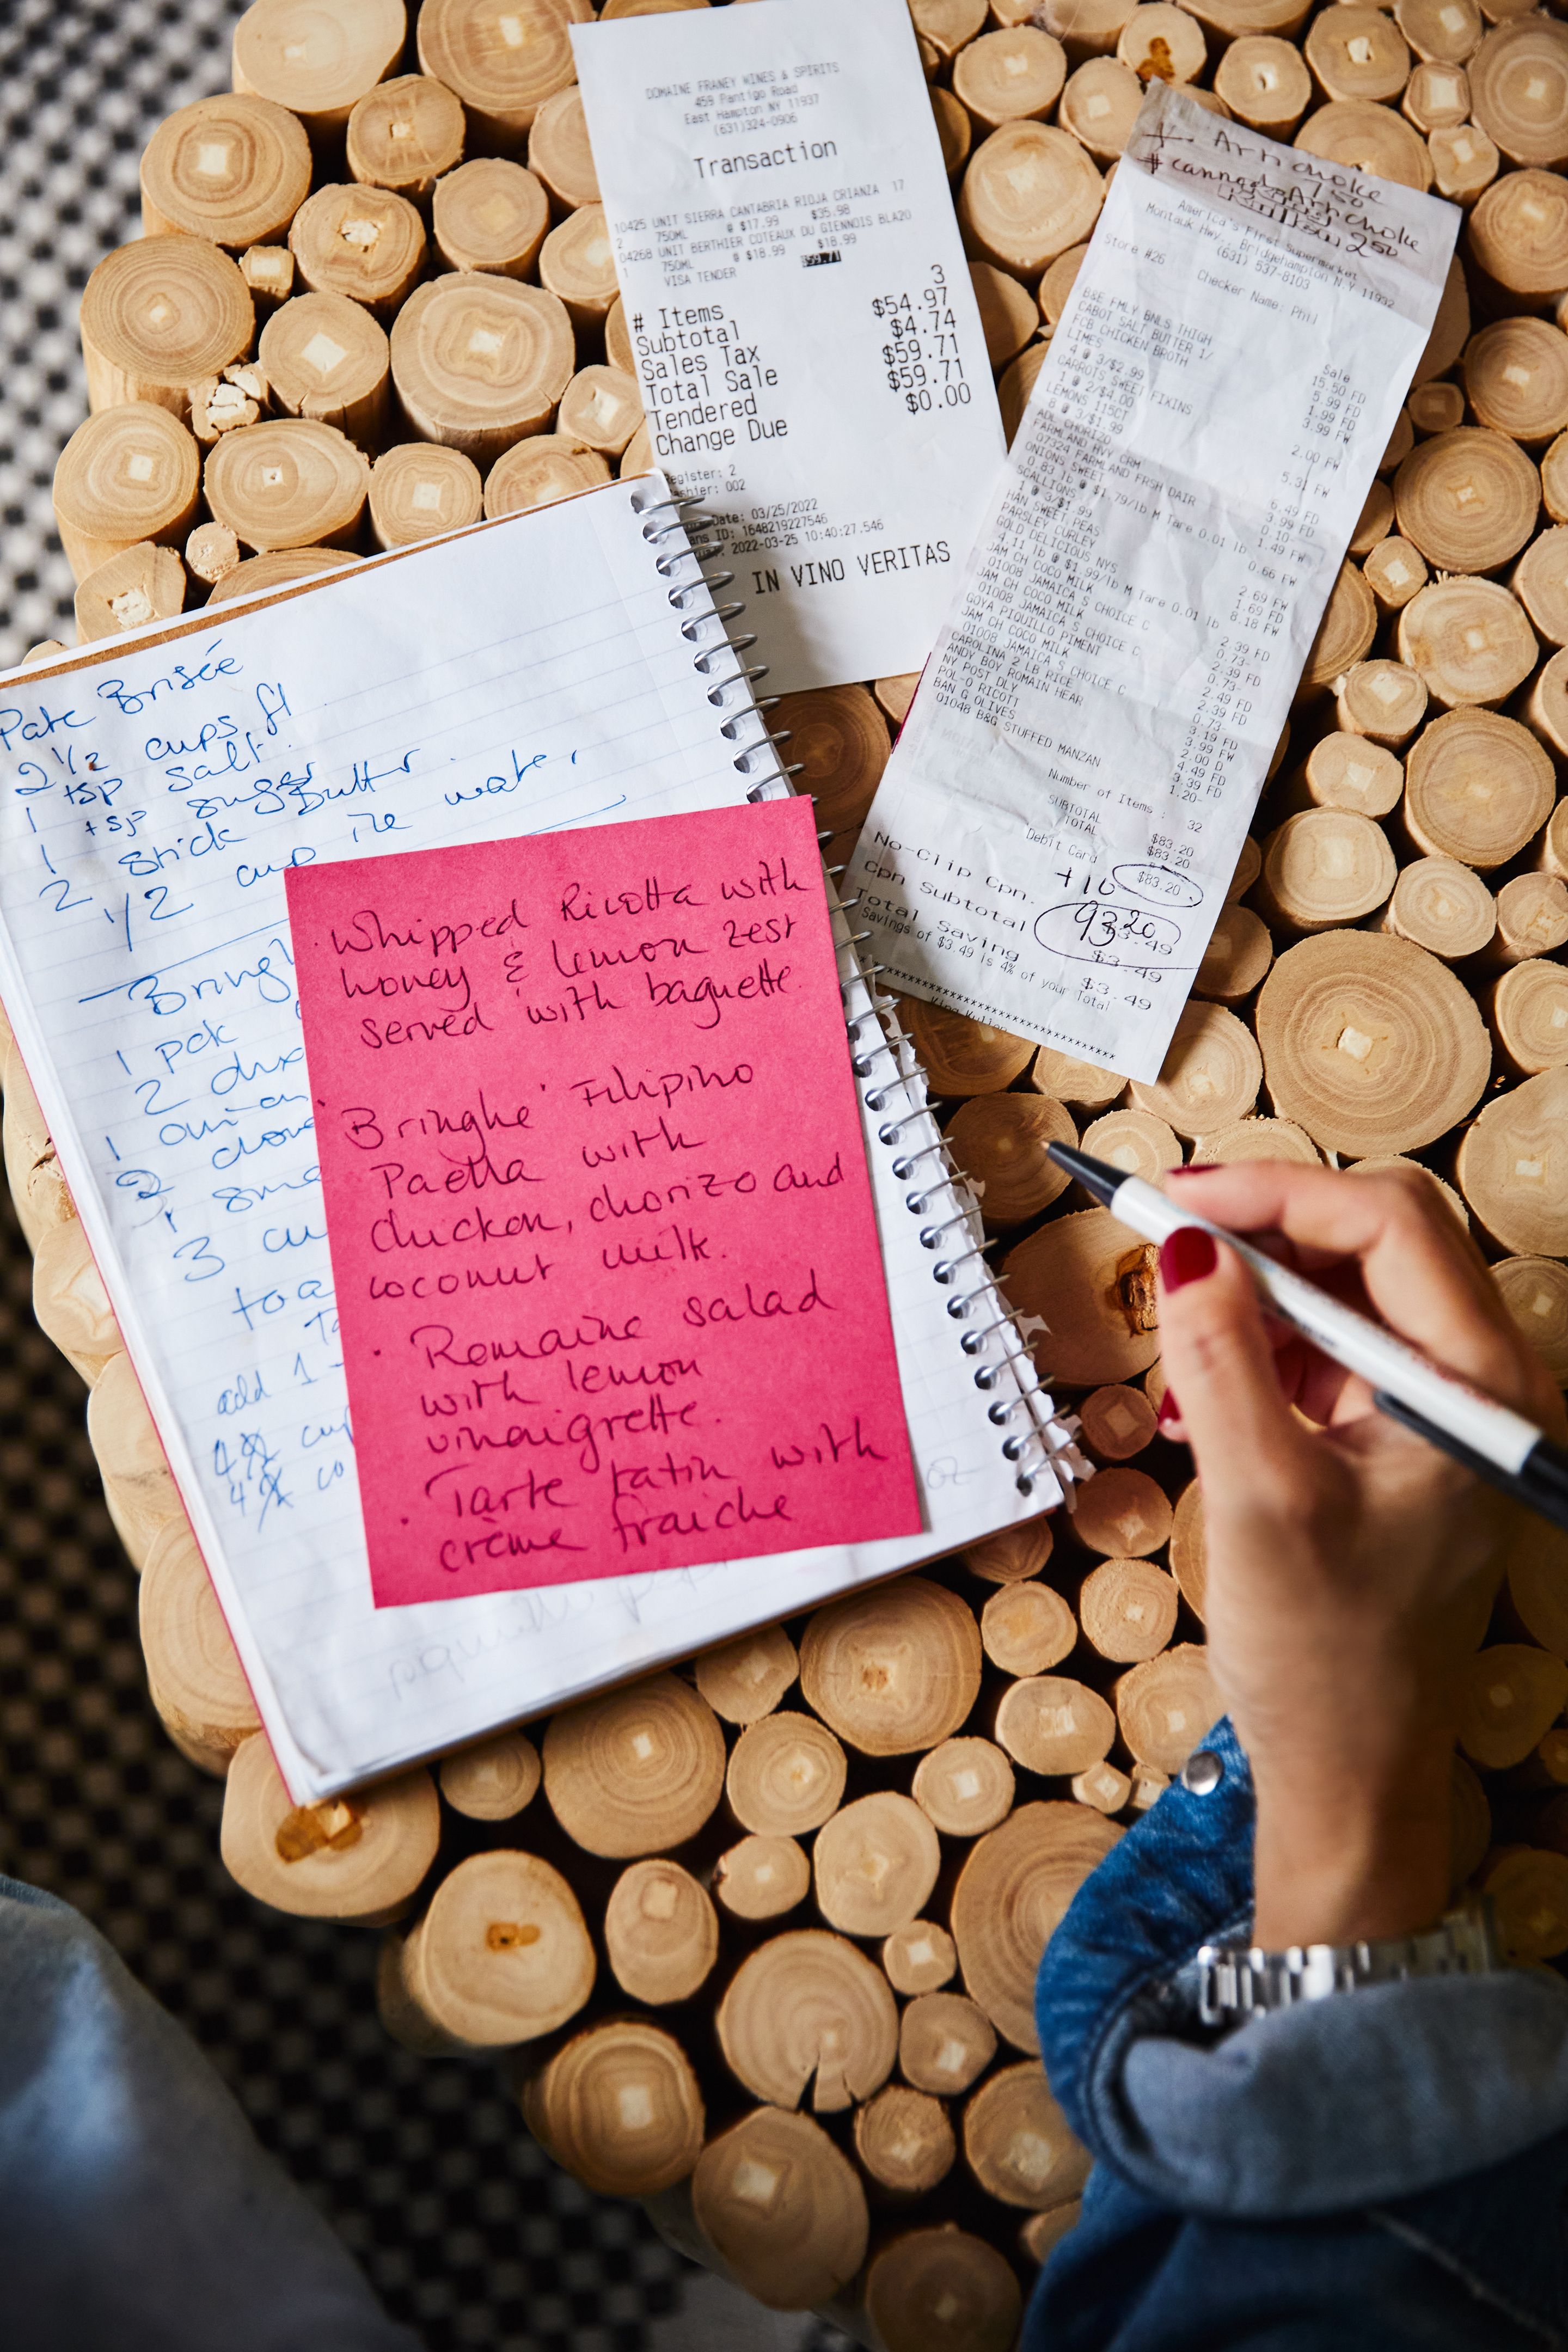 DOMAINE FRANEY WINES & SPIRITS
459 Pantigo Road
East Hampton NY 11937
(631)324-0906
Transaction
10425 UNIT SIERRA CANTABRIA RIOJA CRIANZA 17
2 750ML @ $17.99 $35.98
04268 UNIT BERTHIER COTEAUX DU GIENNOIS BLA20
1 750ML @ $18.99 $18.99
VISA TENDER $59.71
# Items 3
Subtotal $54.97
Sales Tax $4.74
Total Sale $59.71
Tendered $59.71
Change Due $0.00
Register: 2
Cashier: 002
Date: 03/25/2022
ans ID: 1648219227546
2022-03-25 10:40:27.546
IN VINO VERITAS
Artichoke
# canned Artichoke
America's First Supermarket
Montauk Hwy, Bridgehampton N.Y 11932
(631) 537-8103
Store #26 Checker Name: Phil
Sale
B&E FMLY BNLS THIGH 15.50 FD
CABOT SALT BUTTER 1/ 5.99 FD
FCB CHICKEN BROTH 1.99 FD
LIMES 3.99 FW
4 @ 3/$2.99
CARROTS SWEET FIXINS 2.00 FW
1 @ 2/$4.00
LEMONS 115CT 5.31 FW
8 @ 3/$1.99
CHORIZO 6.49 FD
FARMLAND HVY CRM 3.99 FD
07324 FARMLAND FRSH DAIR 0.10-
ONIONS SWEET 1.49 FW
0.83 lb @ $1.79/lb M Tare 0.01 lb
SCALLIONS 0.66 FW
1 @ 3/$1.99
HAN SWEET PEAS 2.69 FW
PARSLEY CURLEY 1.69 FD
GOLD DELICIOUS NYS 8.18 FW
4.11 lb @ $1.99/lb M Tare 0.01 lb
JAM CH COCO MILK 2.39 FD
01008 JAMAICA S CHOICE C 0.73-
JAM CH COCO MILK 2.39 FD
01008 JAMAICA S CHOICE C 0.73-
GOYA PIQUILLO PIMENT 2.49 FD
JAM CH COCO MILK 2.39 FD
01008 JAMAICA S CHOICE C 0.73-
CAROLINA 2 LB RICE 3.19 FD
ANDY BOY ROMAIN HEAR 3.99 FW
NY POST DLY 2.00 D
POL-O RICOTT 4.49 FD
BAN G OLIVES 3.39 FD
01048 B&G STUFFED MANZAN 1.20-
Number of Items : 32
SUBTOTAL $83.20
TOTAL $83.20
Debit Card $83.20
+10
93 20
No-Clip Cpn. $3.49
Cpn Subtotal $3.49
Total Saving $3.49
Savings of $3.49 is 4% of your Total
King Kullen
Pate Brisée
2 1/2 cups fl
1 tsp salt.
1 tsp sugar
2 stick Butter
1/2 cup ice water,
Bringh
1 pck
2
1 onion
2 clove
1 sma
3 cu
toa
add 1
4 cup
4 co
Whipped Ricotta with
honey & lemon zest
served with baguette.
'Bringhe' Filipino
Paella with
Chicken, chorizo and
coconut milk.
· Romaine salad
with lemon
vinaigrette.
· Tarte tatin with
crème fraiche